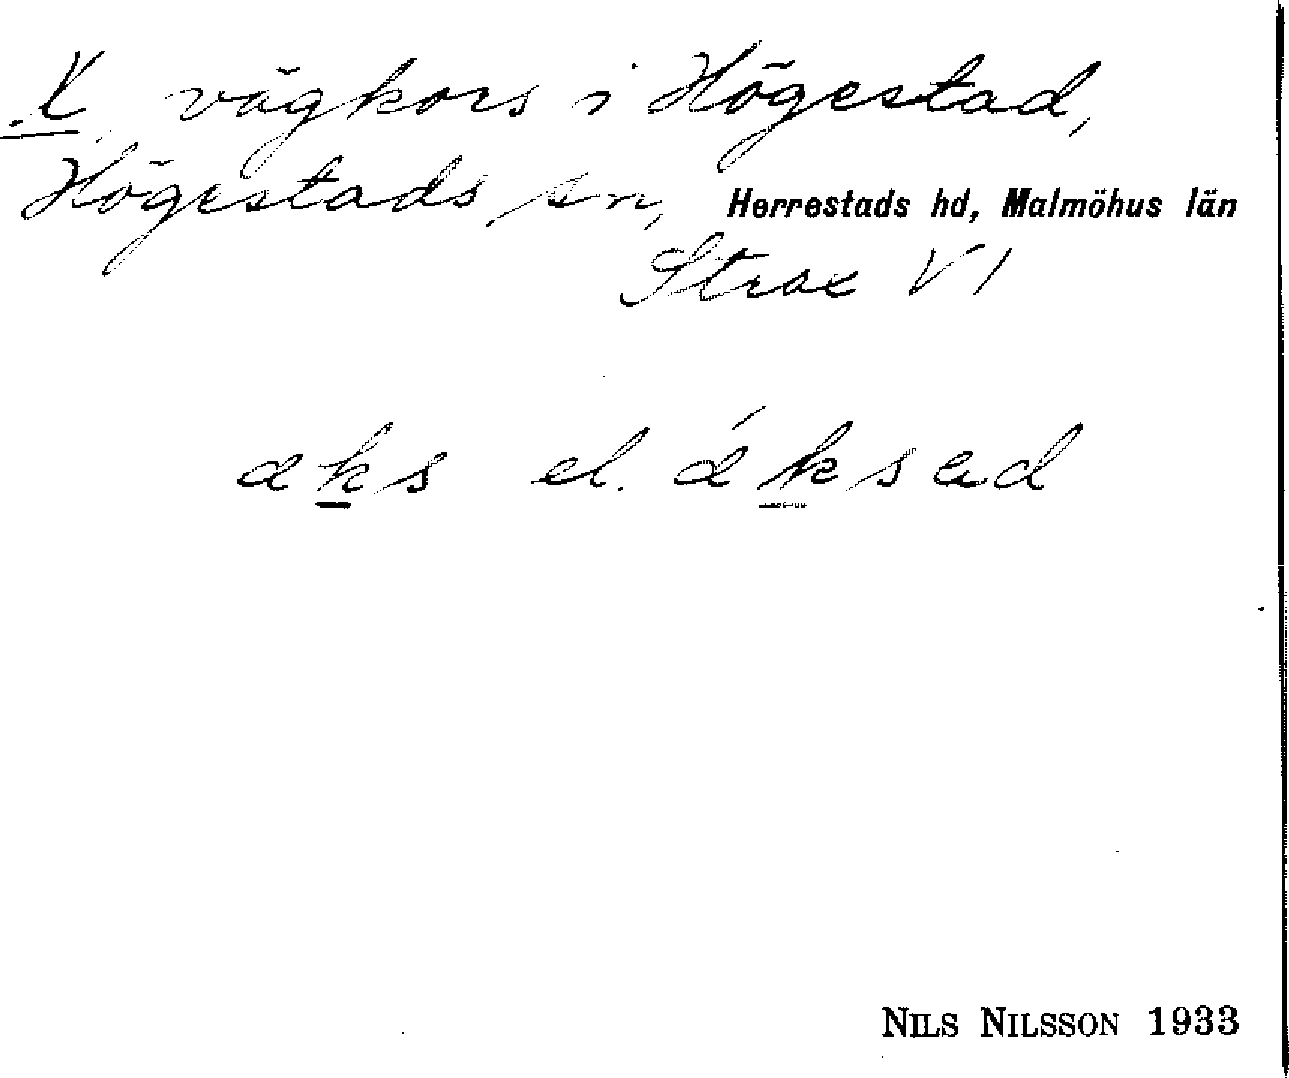 X, vägkors i Högestad,
Högestads sn, Herrestads hd, Malmöhus län
Strax V 1
aks el. áksad
NILS NILSSON 1933